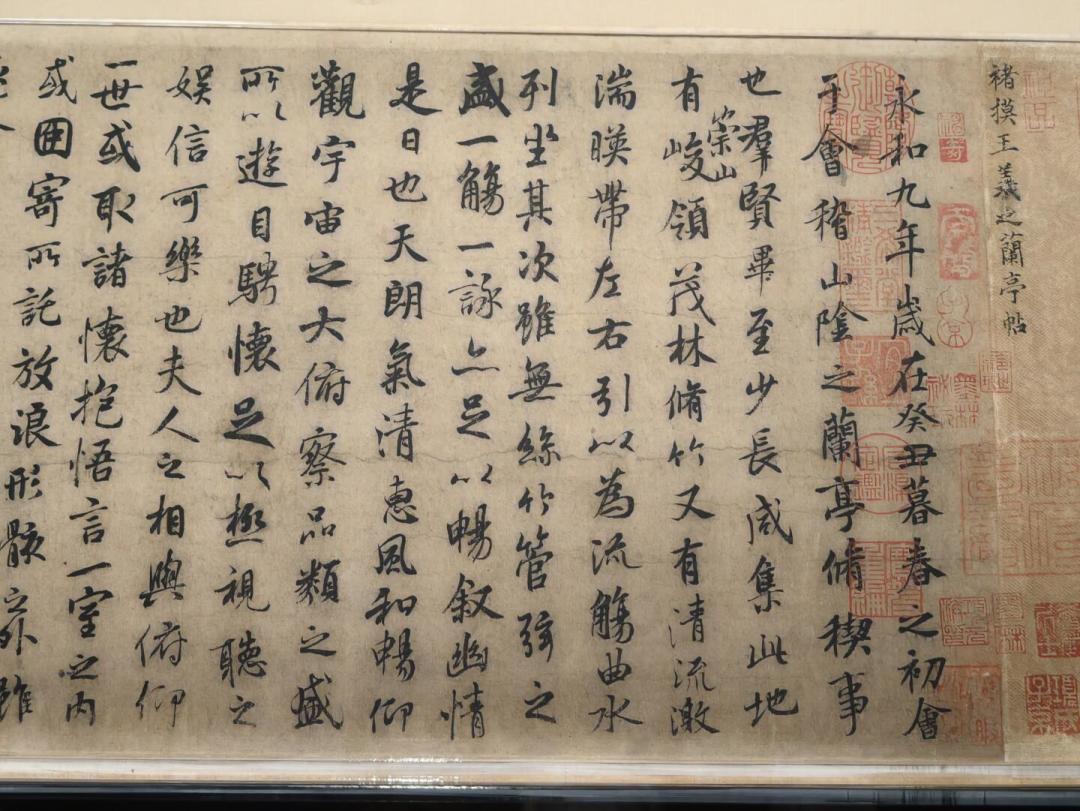 褚摸王羲之蘭亭帖
永和九年歲在癸丑暮春之初會
于會稽山陰之蘭亭脩稧事
也羣賢畢至少長咸集此地
有崇山峻領茂林脩竹又有清流激
湍暎帶左右引以為流觴曲水
列坐其次雖無絲竹管弦之
盛一觴一詠亦足以暢叙幽情
是日也天朗氣清惠風和暢仰
觀宇宙之大俯察品類之盛
所以遊目騁懷足以極視聽之
娛信可樂也夫人之相與俯仰
一世或取諸懷抱悟言一室之內
或因寄所託放浪形骸之外雖